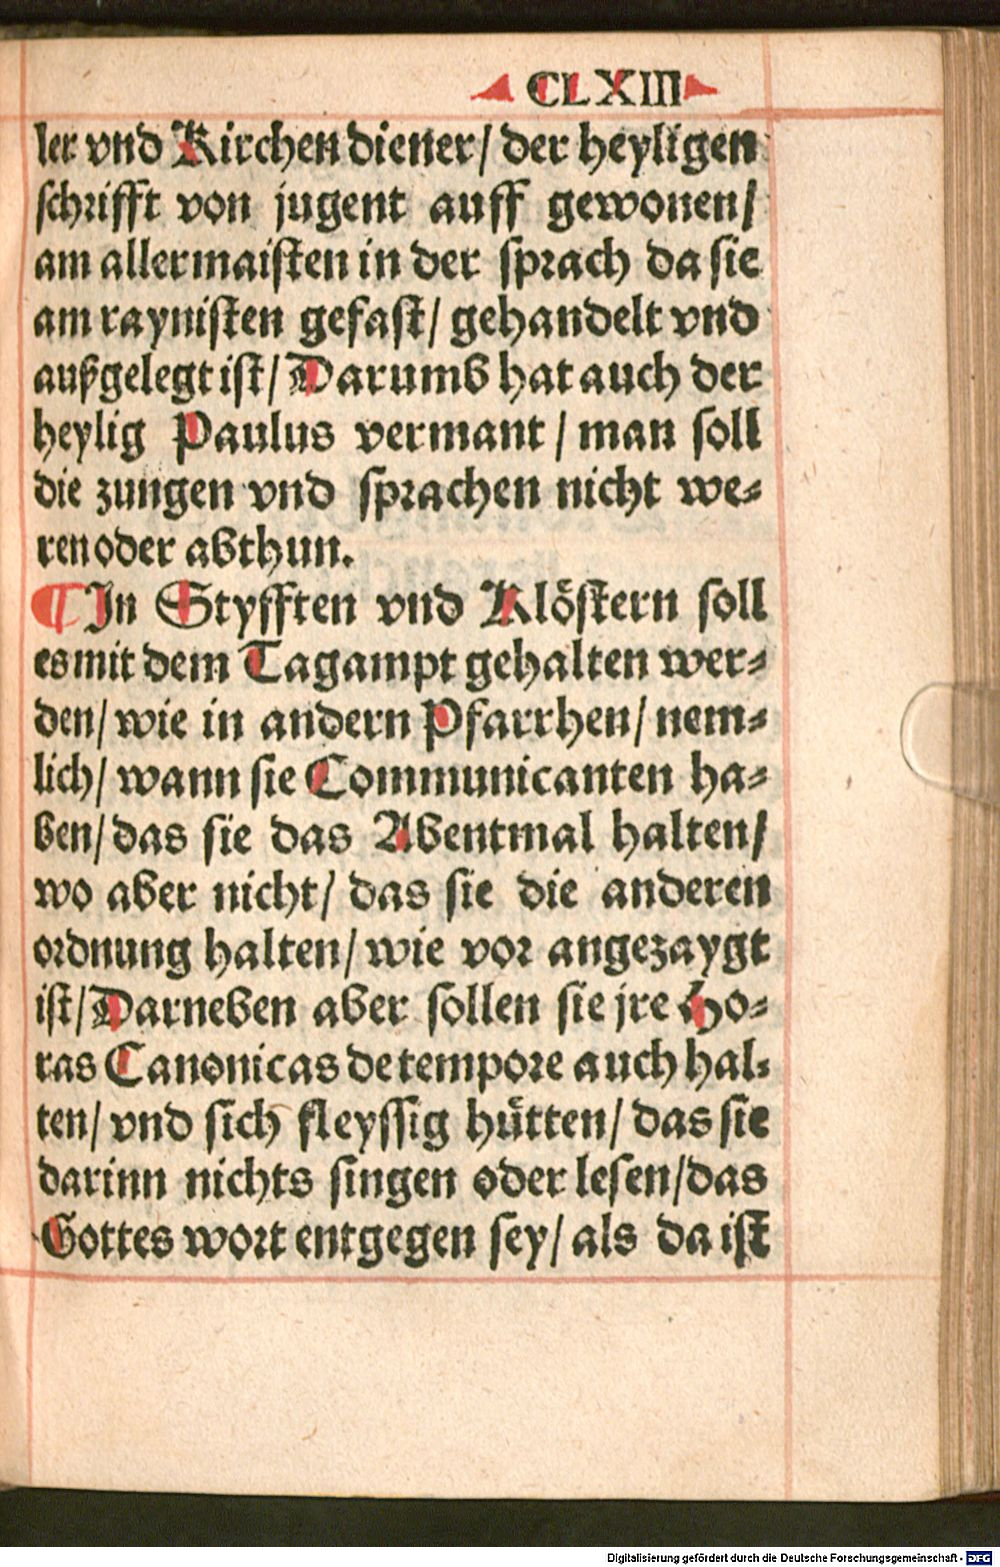 CLXIII
ler vnd Kirchen diener/ der heyligen
schrifft von jugent auff gewonen/
am allermaisten in der sprach da sie
am raynisten gefast/ gehandelt vnd
außgelegt ist/ Darumb hat auch der
heylig Paulus vermant / man soll
die zungen vnd sprachen nicht we⸗
ren oder abthun.
¶ In Styfften vnd Klöstern soll
es mit dem Tagampt gehalten wer⸗
den/ wie in andern Pfarrhen/ nem⸗
lich/ wann sie Communicanten ha⸗
ben/ das sie das Abentmal halten/
wo aber nicht/ das sie die anderen
ordnung halten/ wie vor angezaygt
ist/ Darneben aber sollen sie jre Ho⸗
ras Canonicas de tempore auch hal⸗
ten/ vnd sich fleyssig hütten/ das sie
darinn nichts singen oder lesen/ das
Gottes wort entgegen sey/ als da ist
Digitalisierung gefördert durch die Deutsche Forschungsgemeinschaft - DFG